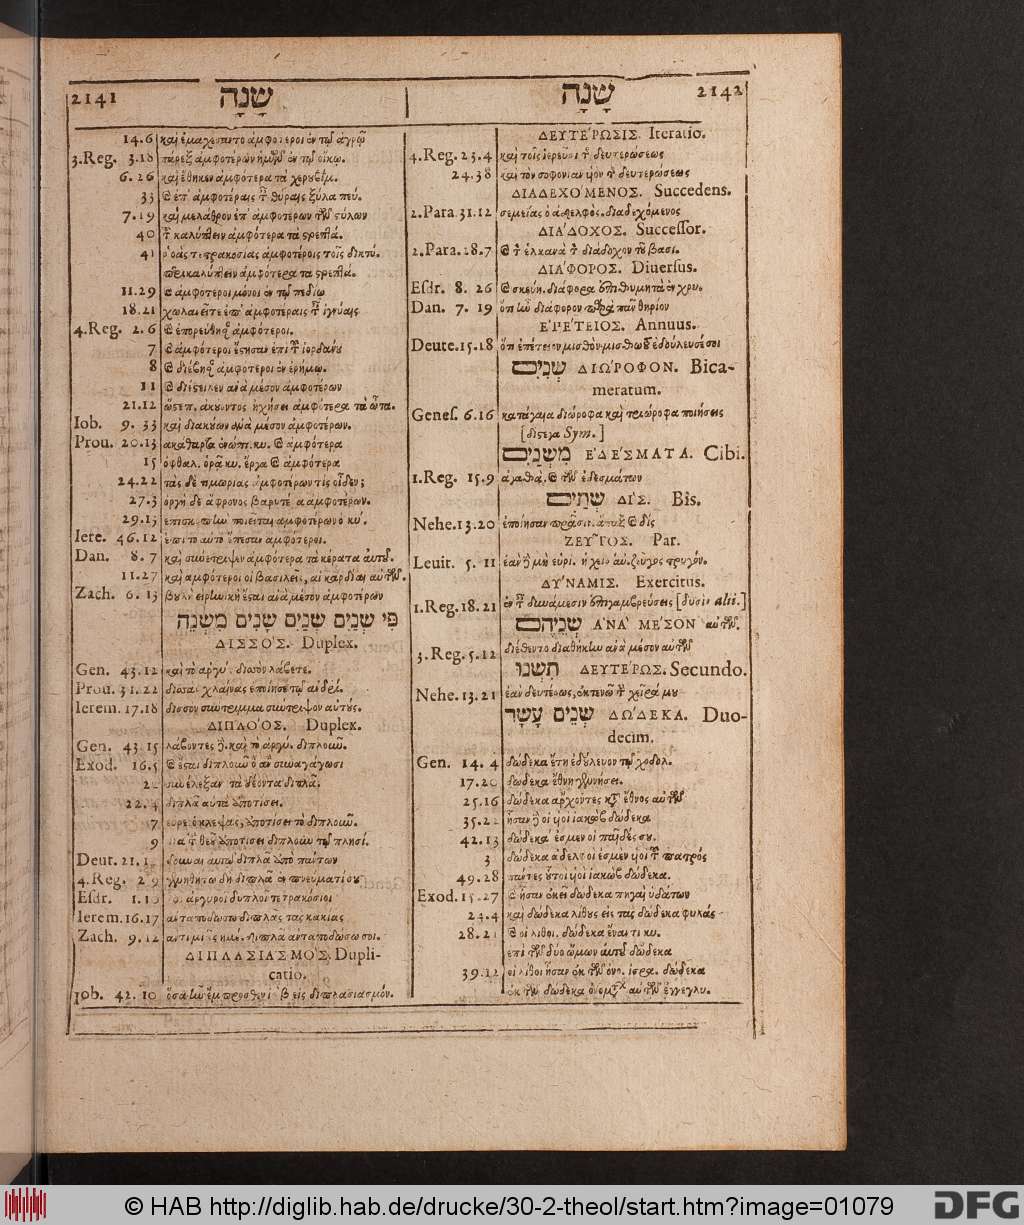 2141 שָׁנָה
14.6 καὶ ἐμαχέσαντο ἀμφότεροι ἐν τῷ ἀγρῷ
3.Reg. 3.18 πάρεξ ἀμφοτέρων ἡμῶν ἐν τῷ οἴκῳ.
6.26 καὶ ἔθηκεν ἀμφότερα τὰ χερουβίμ.
33 καὶ ἐπ' ἀμφοτέραις ταῖς θύραις ξύλα πεύ.
7.19 καὶ μέλαθρον ἐπ' ἀμφοτέρων τῶν στύλων
40 καλύπτειν ἀμφότερα τὰ στρεπτά.
41 ῥοὰς τετρακοσίας ἀμφοτέροις τοῖς δικτύ.
περικαλύπτειν ἀμφότερα τὰ στρεπτά.
11.29 καὶ ἀμφότεροι μόνοι ἐν τῷ πεδίῳ
18.21 χωλανεῖτε ἐπ' ἀμφοτέραις ταῖς ἰγνύαις
4.Reg. 2.6 καὶ ἐπορεύθησαν ἀμφότεροι.
7 καὶ ἀμφότεροι ἔστησαν ἐπὶ τοῦ ἰορδάνου
8 καὶ διέβησαν ἀμφότεροι ἐν ἐρήμῳ.
11 καὶ διέστειλεν ἀνὰ μέσον ἀμφοτέρων
21.12 ὥστε π. ἀκούοντος ἠχήσει ἀμφότερα τὰ ὦτα.
Iob. 9.33 καὶ διακούων ἀνὰ μέσον ἀμφοτέρων.
Prou. 20.13 ἀκάθαρτα ἐνώπι. κυ. καὶ ἀμφότερα
15 ὀφθαλ. ὁρᾷ κυ. ἔργα καὶ ἀμφότερα
24.22 τὰς δὲ τιμωρίας ἀμφοτέρων τίς οἶδεν;
27.3 ὀργὴ δὲ ἄφρονος βαρυτέρα ἀμφοτέρων.
29.13 ἐπισκοπὴν ποιεῖται ἀμφοτέρων ὁ κύ.
Iere. 46.12 ἐπὶ τὸ αὐτὸ ἔπεσαν ἀμφότεροι.
Dan. 8.7 καὶ συνέτριψεν ἀμφότερα τὰ κέρατα αὐτοῦ.
11.27 καὶ ἀμφότεροι οἱ βασιλεῖς, αἱ καρδίαι αὐτῶν.
Zach. 6.13 βουλὴ εἰρηνικὴ ἔσται ἀνὰ μέσον ἀμφοτέρων
פִּי שְׁנַיִם שְׁנַיִם שְׁנַיִם מִשְׁנֶה
ΔΙΣΣΟΣ. Duplex.
Gen. 43.12 καὶ τὸ ἀργύ. δισσὸν λάβετε.
Prou. 31.22 δισσὰς χλαίνας ἐποίησε τῷ ἀνδρί.
Ierem. 17.18 δισσὸν σύντριμμα σύντριψον αὐτούς.
ΔΙΠΛΟΌΣ. Duplex.
Gen. 43.15 λαβόντες δὲ καὶ τὸ ἀργύ. διπλοῦν.
Exod. 16.5 καὶ ἔσται διπλοῦν ὃ ἂν συναγάγωσι
συνέλεξαν τὰ δέοντα διπλᾶ.
22.4 διπλᾶ αὐτὰ ἀποτίσει.
7 εὑρε. ὁ κλέψας, ἀποτίσει τὸ διπλοῦν.
9 διὰ τοῦ θεοῦ ἀποτίσει διπλοῦν τῷ πλησί.
Deut. 21.1 δοῦναι αὐτῷ διπλᾶ ἀπὸ πάντων
4.Reg. 2 9 γενηθήτω δὴ διπλᾶ ἐν πνεύματί σου
Esdr. 1.10 ἀργυροῖ διπλοῖ τετρακόσιοι
Ierem. 16.17 ἀνταποδώσω διπλᾶς τὰς κακίας
Zach. 9.12 ἀντὶ μιᾶς ἡμέ. διπλᾶ ἀνταποδώσω σοι.
ΔΙΠΛΑΣΙΑΣΜΌΣ. Dupli-
catio.
Iob. 42.10 ὅσα ἦν ἔμπροσθεν ἰὼβ εἰς διπλασιασμόν.
שָׁנָה 2142
ΔΕΥΤΈΡΩΣΙΣ. Iteratio.
4.Reg. 23.4 καὶ τοῖς ἱερεῦσι τῆς δευτερώσεως
24.38 καὶ τὸν σοφονίαν υἱὸν τῆς δευτερώσεως
ΔΙΑΔΕΧΌΜΕΝΟΣ. Succedens.
2.Para. 31.12 σεμείας ὁ ἀδελφὸς. διαδεχόμενος
ΔΙΆΔΟΧΟΣ. Successor.
2.Para. 28.7 καὶ τὸν ἑλκανὰ τὸν διάδοχον τοῦ βασι.
ΔΙΆΦΟΡΟΣ. Diuersus.
Esdr. 8.26 καὶ σκεύη. διάφορα ἐπιθυμητὰ ἐν χρυ.
Dan. 7.19 ὅτι ἦν διάφορον παρὰ πᾶν θηρίον
ἘΠΈΤΕΙΟΣ. Annuus.
Deute. 15.18 ὅτι ἐπέτειον μισθὸν μισθωτοῦ ἐδούλευσέ σοι
שְׁנִיִּם ΔΙΏΡΟΦΟΝ. Bica-
meratum.
Genes. 6.16 κατάγαια διώροφα καὶ τριώροφα ποιήσεις
[δίστεγα Sym.]
מִשְׁנַיִם ἘΔΈΣΜΑΤΑ. Cibi.
1.Reg. 15.9 ἀγαθὰ, καὶ τῶν ἐδεσμάτων
שְׁתַּיִם ΔΊΣ. Bis.
Nehe. 13.20 ἐποίησαν πρᾶσιν. ἅπαξ καὶ δὶς
ΖΕΥ͂ΓΟΣ. Par.
Leuit. 5.11 ἐὰν δὲ μὴ εὑρί. ἡ χεὶρ αὐ. ζεῦγος τρυγόν.
ΔΎΝΑΜΙΣ. Exercitus.
1.Reg. 18.21 ἐν ταῖς δυνάμεσιν ἐπιγαμβρεύσεις [δυσὶν alii.]
שְׁנֵיהֶם ἈΝᾺ ΜΈΣΟΝ αὐτῶν.
3.Reg. 5.12 διέθεντο διαθήκην ἀνὰ μέσον αὐτῶν
תִּשְׁנוּ ΔΕΥΤΈΡΩΣ. Secundo.
Nehe. 13.21 ἐὰν δευτέρως, ἐκτενῶ τὴν χεῖρά μου
שְׁנֵים עָשָׂר ΔΏΔΕΚΑ. Duo-
decim.
Gen. 14.4 δώδεκα ἔτη ἐδούλευον τῷ χοδολ.
17.20 δώδεκα ἔθνη γεννήσει.
25.16 δώδεκα ἄρχοντες κατὰ ἔθνος αὐτῶν
35.22 ἦσαν δὲ οἱ υἱοὶ ἰακὼβ δώδεκα
42.13 δώδεκά ἐσμεν οἱ παῖδές σου.
3 δώδεκα ἀδελφοί ἐσμὲν υἱοὶ τοῦ πατρὸς
49.28 πάντες οὗτοι υἱοὶ ἰακὼβ δώδεκα.
Exod. 15.27 καὶ ἦσαν ἐκεῖ δώδεκα πηγαὶ ὑδάτων
24.4 καὶ δώδεκα λίθους εἰς τὰς δώδεκα φυλὰς
28.21 καὶ οἱ λίθοι. δώδεκα ἔναντι κυ.
ἐπὶ τῶν δύο ὤμων αὐτοῦ δώδεκα
39.12 οἱ λίθοι ἦσαν ἐκ τῶν ὀνο. ἰσρα. δώδεκα
ἐκ τῶν δώδεκα ὀνομάτων αὐτῶν ἐγγεγλυ.
© HAB http://diglib.hab.de/drucke/30-2-theol/start.htm?image=01079
DFG